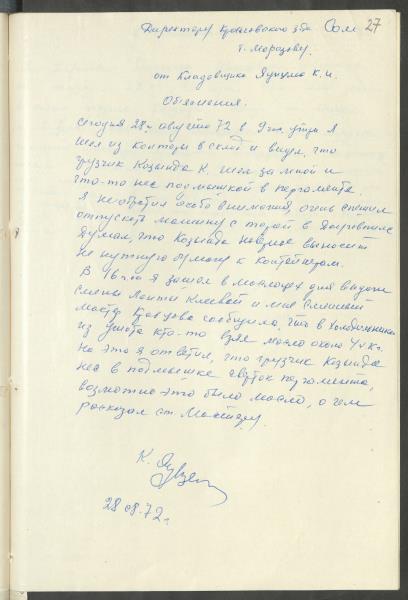 Директору Кролевского з-да Сом 27
т. Морозову.
от Кладовщика К. И.
Объяснения.
Сегодня 28го августа 72 в 9 час утра я
шел из конторы в склад и видел, что
грузчик Козында К. шел за мной и
что-то нес под мышкой в пергаменте.
Я не обратил особо внимания, очень спешил
отпускать машину с тарой в
Думал, что Козында наверное выносит
не нужную бумагу к контейнерам.
В 16 час я зашел в маслоцех для выдачи
смены и мне сменный
мастер сообщила, что в холодильнике
из ушата кто-то взял масло около 4х кг.
На это я ответил, что грузчик Козында
нес в подмышке сверток пергамента,
возможно это было масло, о чем
рассказал ст. мастеру.
К.
28 08.72 г.